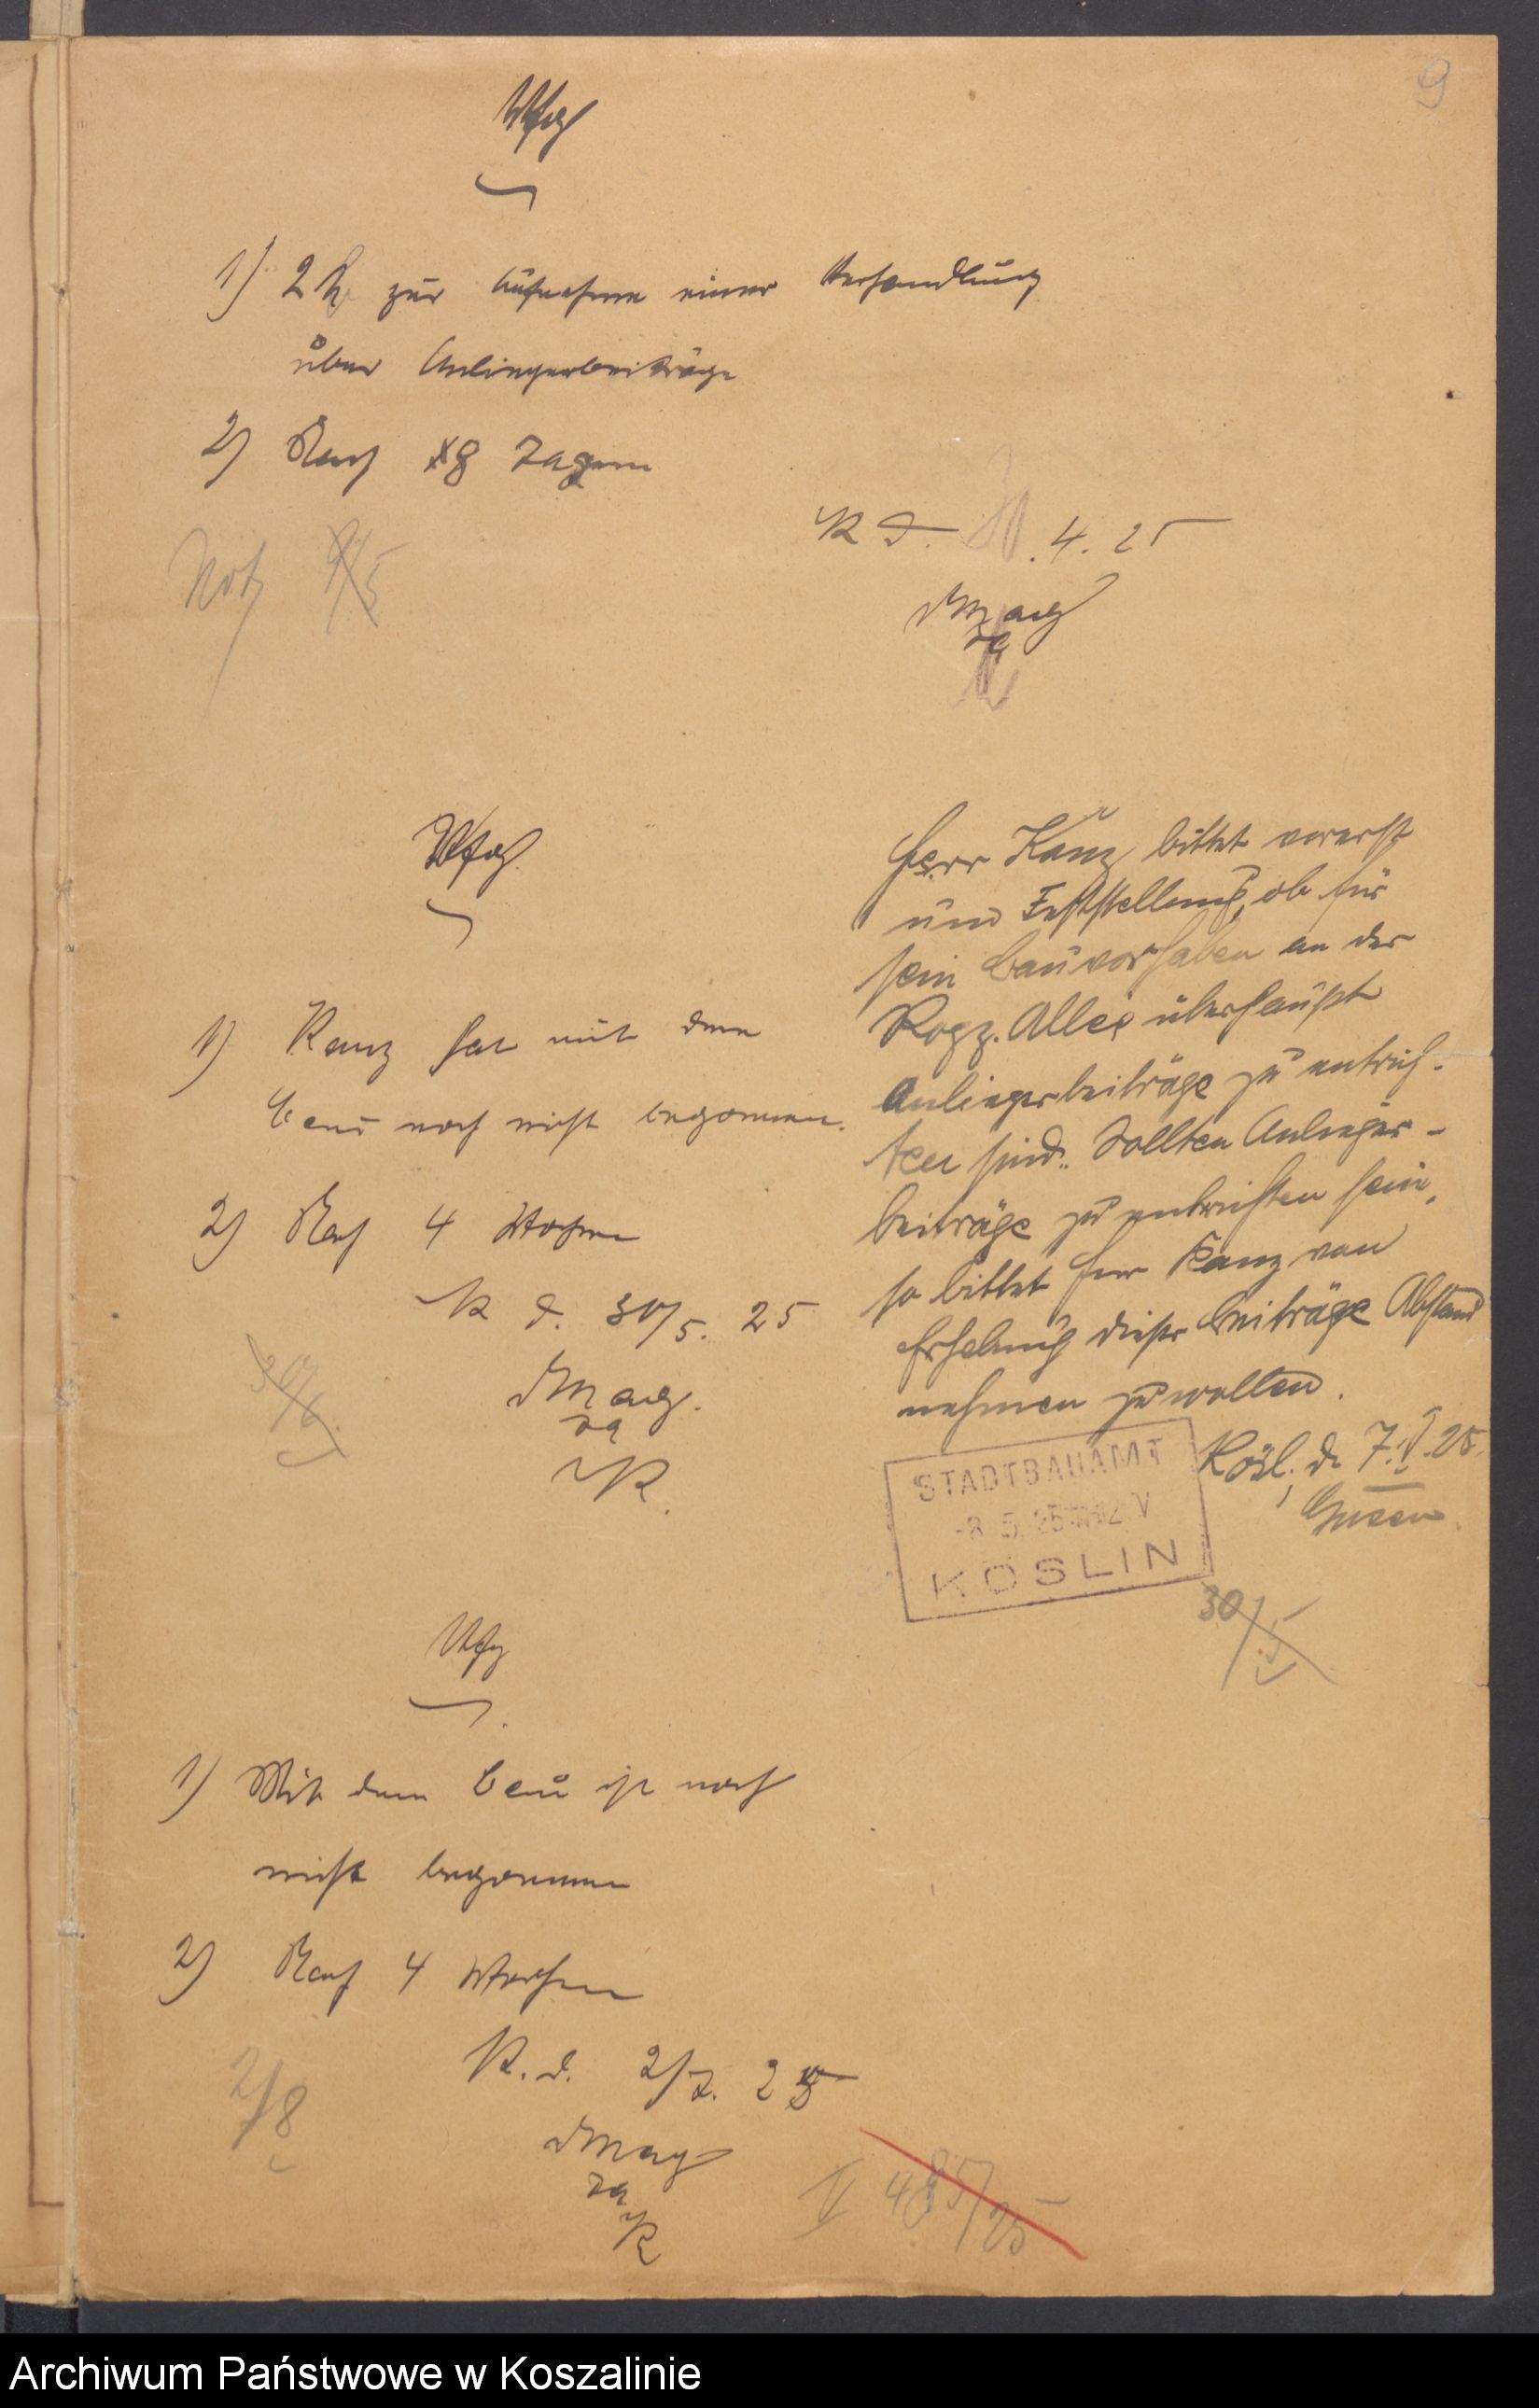 9
Vfg
1) 2 h zur Aufnahme einer Verhandlung
über Anliegerbeiträge
2) Nach 8 Tagen
K d. .4.25
DMag
Not 9/5
Vfg.
1) Kanz hat mit dem
Bau noch nicht begonnen.
2) Nach 4 Wochen
K d. 30/5. 25
DMag.
K.
30/6.
Herr Kanz bittet vorerst
um Feststellung, ob für
sein Bauvorhaben an der
Rogz. Allee überhaupt
Anliegerbeiträge zu entrich-
ten sind. Sollten Anlieger-
beiträge zu entrichten sein,
so bittet Herr Kanz von
Erhebung dieser Beiträge Abstand
nehmen zu wollen.
Kösl., d. 7.V.25.
STADTBAUAMT
-8.5.25 V
KÖSLIN
30/5
Vfg
1) Mit dem Bau ist noch
nicht begonnen
2) Nach 4 Wochen
K. d. 2/7. 25
DMag
K
2/8
V 485/25
Archiwum Państwowe w Koszalinie